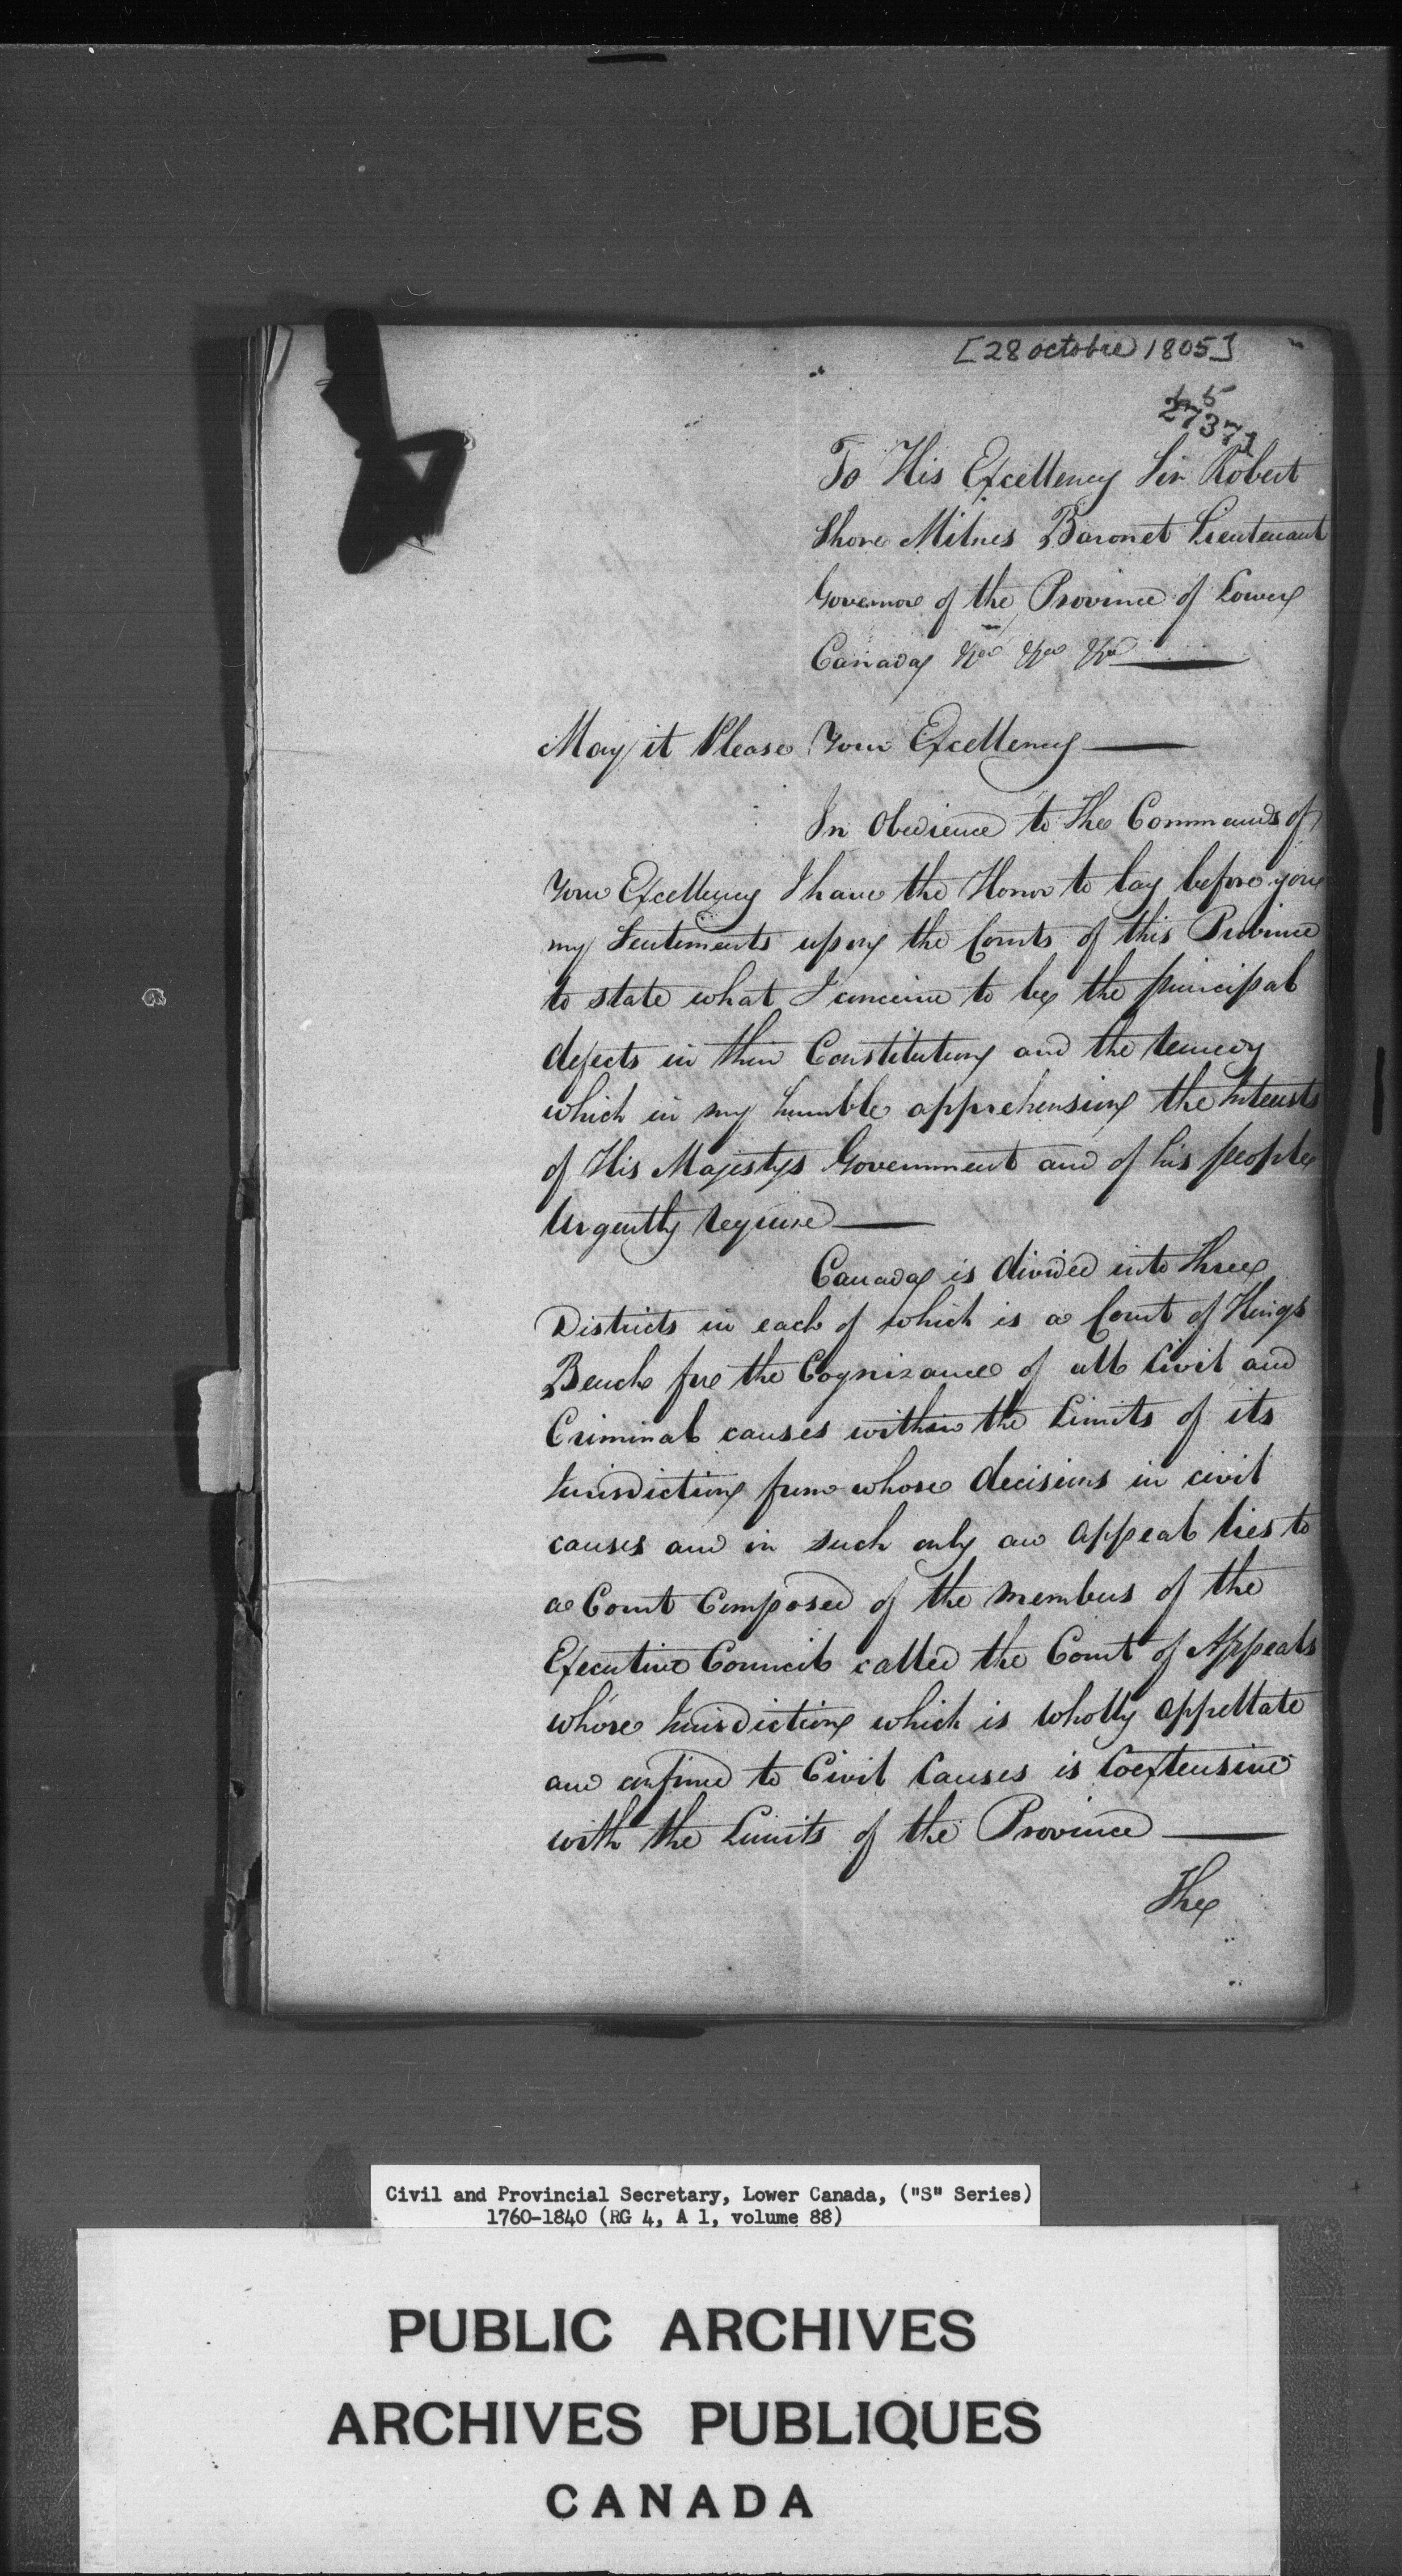 [28 octobre 1805]
5
27371
To His Excellency Sir Robert
Shore Milnes Baronet Lieutenant
Governor of the Province of Lower
Canada &ca &ca &ca
May it Please Your Excellency
In Obedience to The Commands of
Your Excellency I have the Honor to lay before you
my Sentiments upon the Courts of this Province
to state what I conceive to be the principal
defects in their Constitution and the remedy
which in my humble apprehension the Interests
of His Majestys Government and of his people
Urgently require
Canada is divided into Three
Districts in each of which is a Court of Kings
Bench for the Cognizance of all Civil and
Criminal causes within the Limits of its
Jurisdiction from whose decisions in civil
causes and in such only an appeal lies to
a Court Composed of the members of the
Executive Council called the Court of Appeals
whose Jurisdiction which is wholly appellate
and confined to Civil Causes is Coextensive
with the Limits of the Province
The
Civil and Provincial Secretary, Lower Canada, ("S" Series)
1760-1840 (RG 4, A 1, volume 88)
PUBLIC ARCHIVES
ARCHIVES PUBLIQUES
CANADA